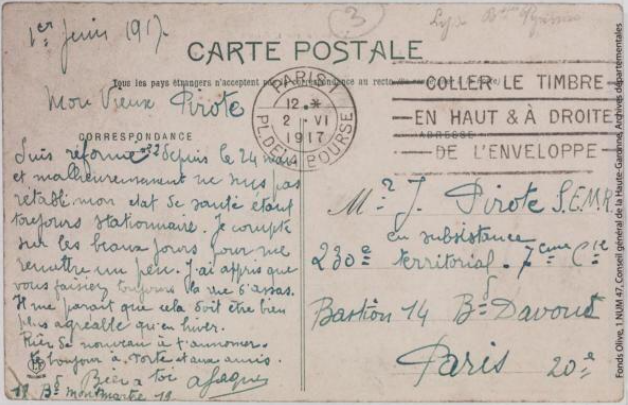 1er Juin 1917.
3
CARTE POSTALE
Tous les pays étrangers n'acceptent pas la correspondance au recto
Mon Vieux Pirote
CORRESPONDANCE
Suis réformé n°2 depuis le 24 mars
et malheureusement ne suis pas
rétabli mon état de santé étant
toujours stationnaire. Je compte
sur les beaux jours pour me
remettre un peu. J'ai appris que
vous faisiez toujours la rue d'assas.
Il me parait que cela doit être bien
plus agréable qu'en hiver.
Rien de nouveau à t'annoncer.
bonjour à Torte et aux amis.
Bien à toi
Bd Montmartre 19
PARIS
12 *
2 VI
1917
PL. DE LA BOURSE
COLLER LE TIMBRE
EN HAUT & À DROITE
ADRESSE
DE L'ENVELOPPE
Mr J. Pirote S.E.M.R.
en subsistance
230e territorial. 7eme Cie
Bastion 14 Bd Davout
Paris 20e
Fonds Olive, 1 NUM 47, Conseil général de la Haute-Garonne, Archives départementales